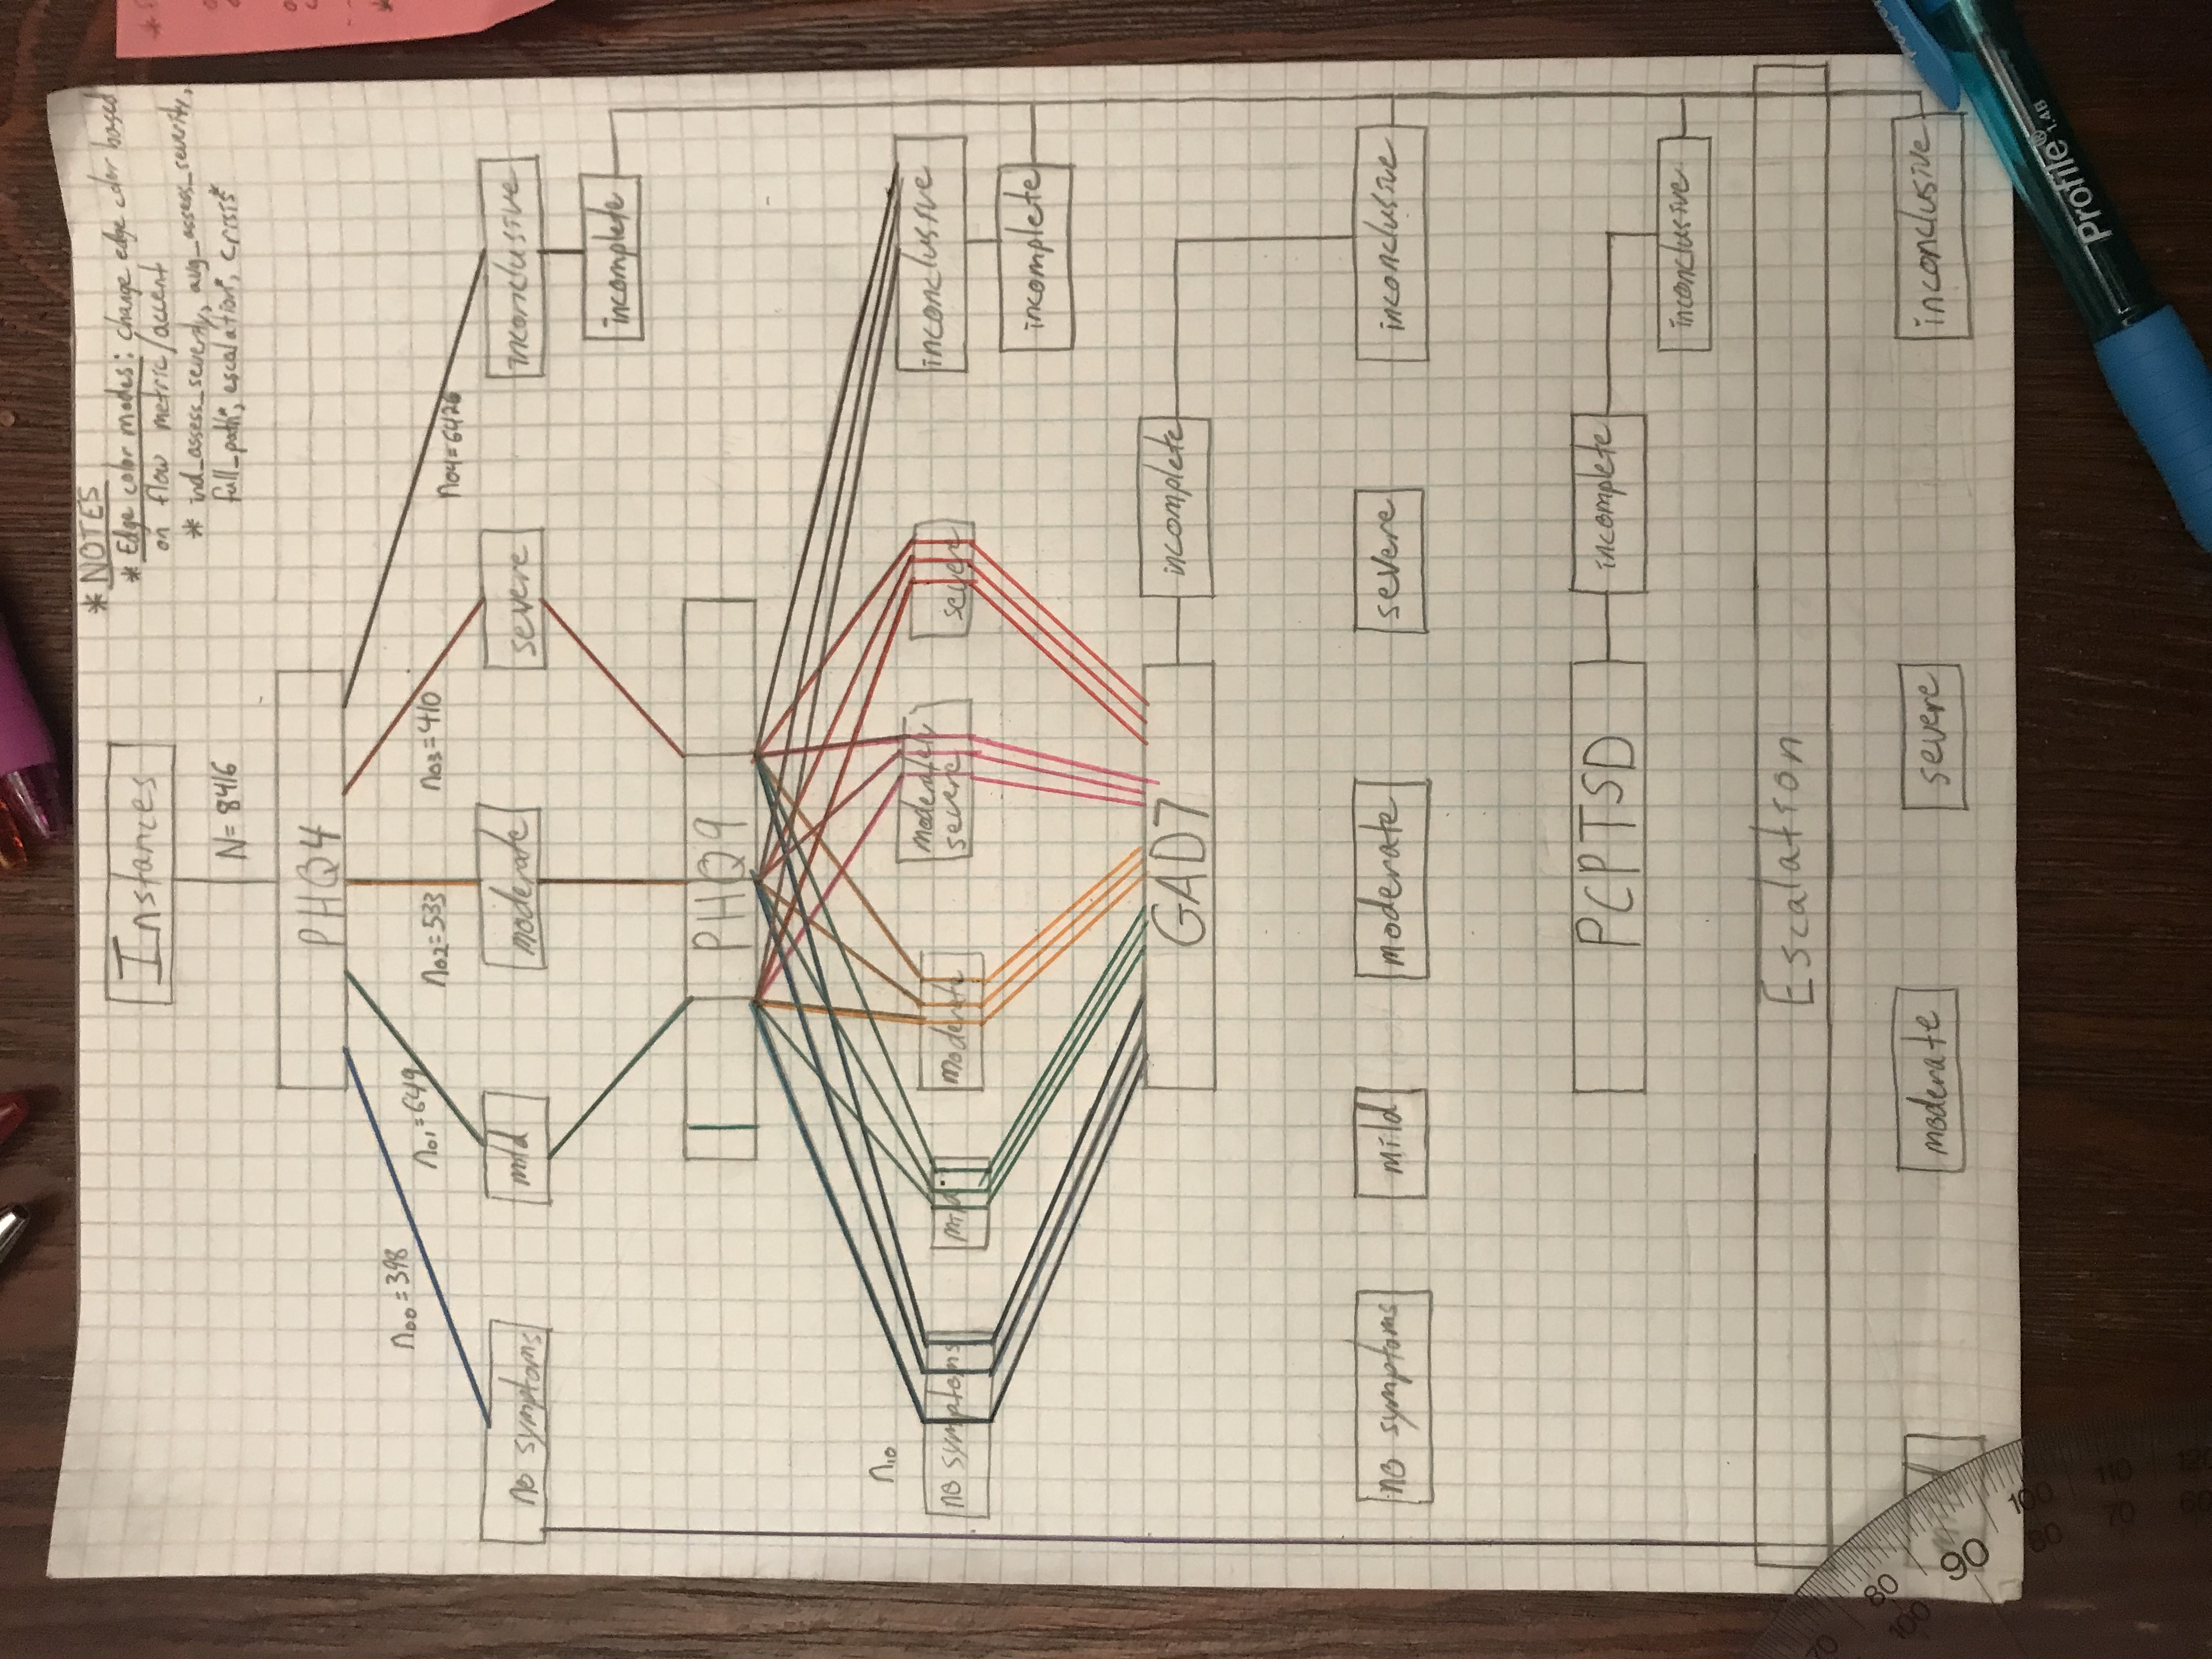 * NOTES
* Edge color modes: change edge color based
on flow metric/accent
* ind_assess_severity, avg_assess_severity,
full_path*, escalation*, crisis*
Instances
N= 8416
PHQ4
n00=398
n01=649
n02=533
n03=410
n04=6426
no symptoms
mild
moderate
severe
inconclusive
incomplete
PHQ9
n10
no symptoms
mild
moderate
moderately
severe
severe
inconclusive
incomplete
GAD7
incomplete
no symptoms
mild
moderate
severe
inconclusive
PCPTSD
incomplete
inconclusive
Escalation
moderate
severe
inconclusive
70
80
100
90
100
80
110
70
60
Profile® 1.4B